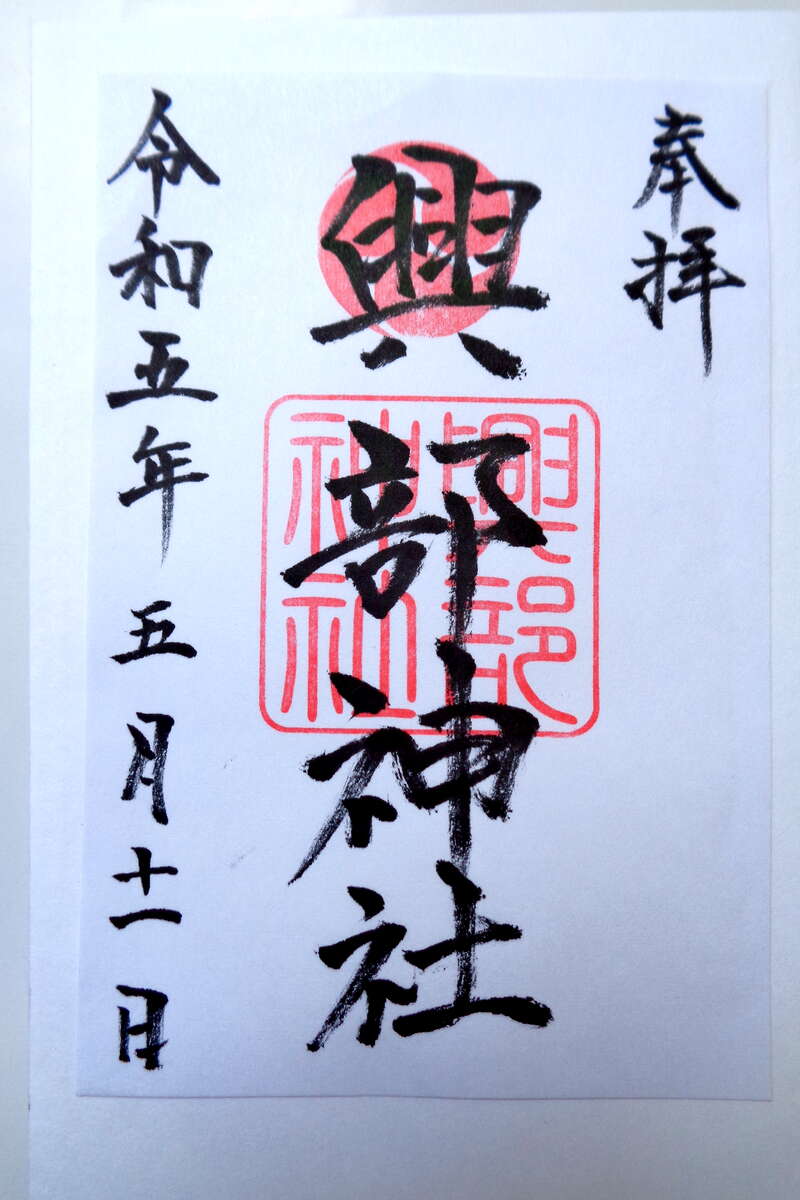 奉拝
興部神社
興部
神社
令和五年五月十一日